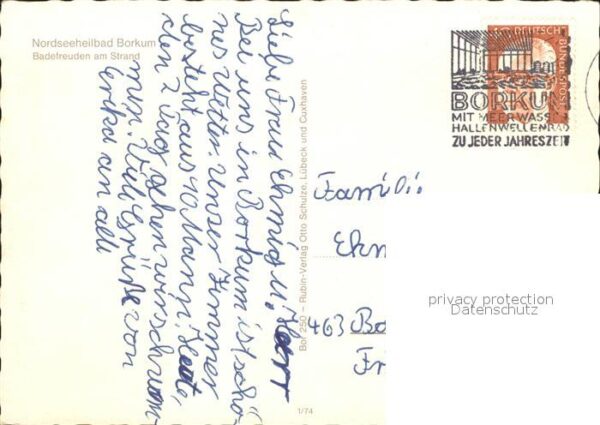 Nordseeheilbad Borkum
Badefreuden am Strand
Liebe Frau Ehmig u. Herr
Bei uns in Borkum ist schö-
nes Wetter. Unser Zimmer
besteht aus 10 Mann. Heute,
den 2 Tag schon verschwom-
men. Viele Grüße von
Erika an alle
Bor 250 – Rubin-Verlag Otto Schulze, Lübeck und Cuxhaven
1/74
DEUTSCHE
BUNDESPOST
BORKUM
MIT MEERWASS
HALLENWELLENBAD
ZU JEDER JAHRESZEIT
Familie
Ehm
463 Bo
Fr
privacy protection
Datenschutz